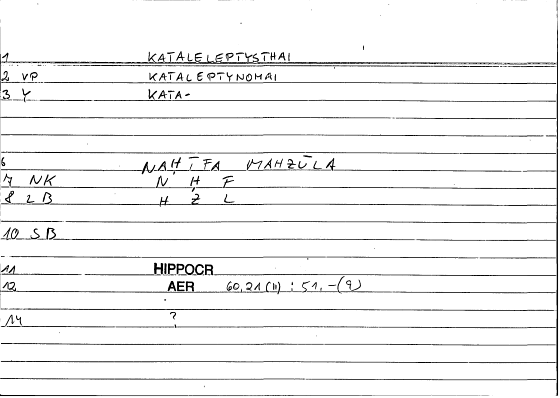 1 KATALELEPTYSTHAI
2 VP KATALEPTYNOMAI
3 Y KATA-
6 NAḤĪFA MAHZŪLA
7 NK N Ḥ F
8 2 B H Z L
10 SB
11 HIPPOCR
12 AER 60,21(11) : 51,-(9)
14 ?